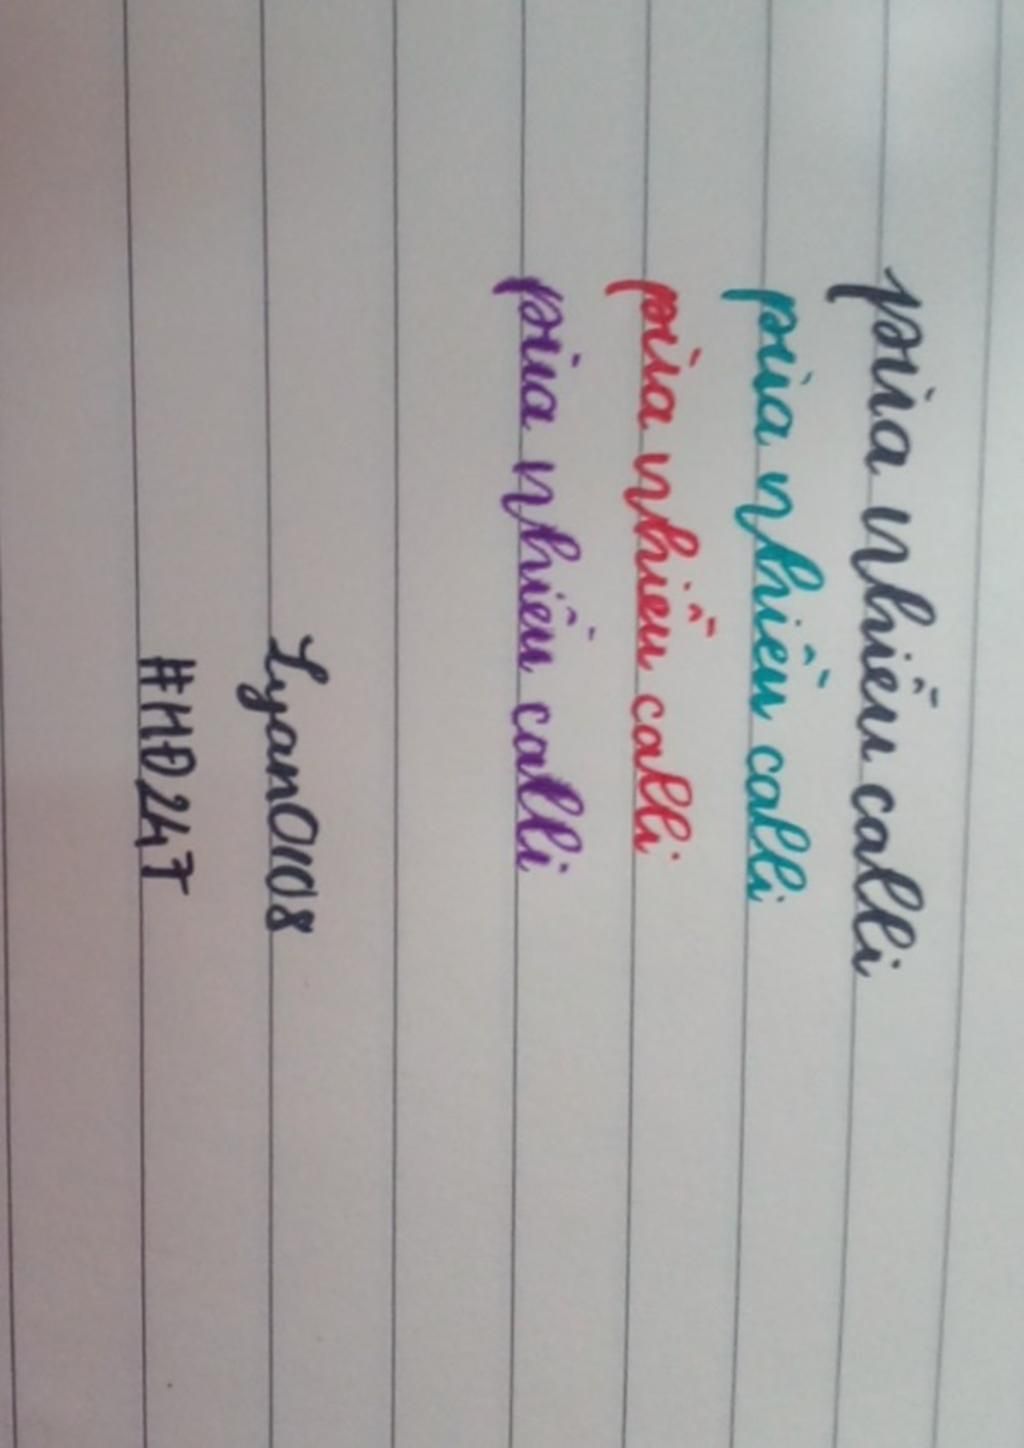 pìa nhiều calli
pìa nhiều calli
pìa nhiều calli
pìa nhiều calli
Lyan0108
#HĐ247